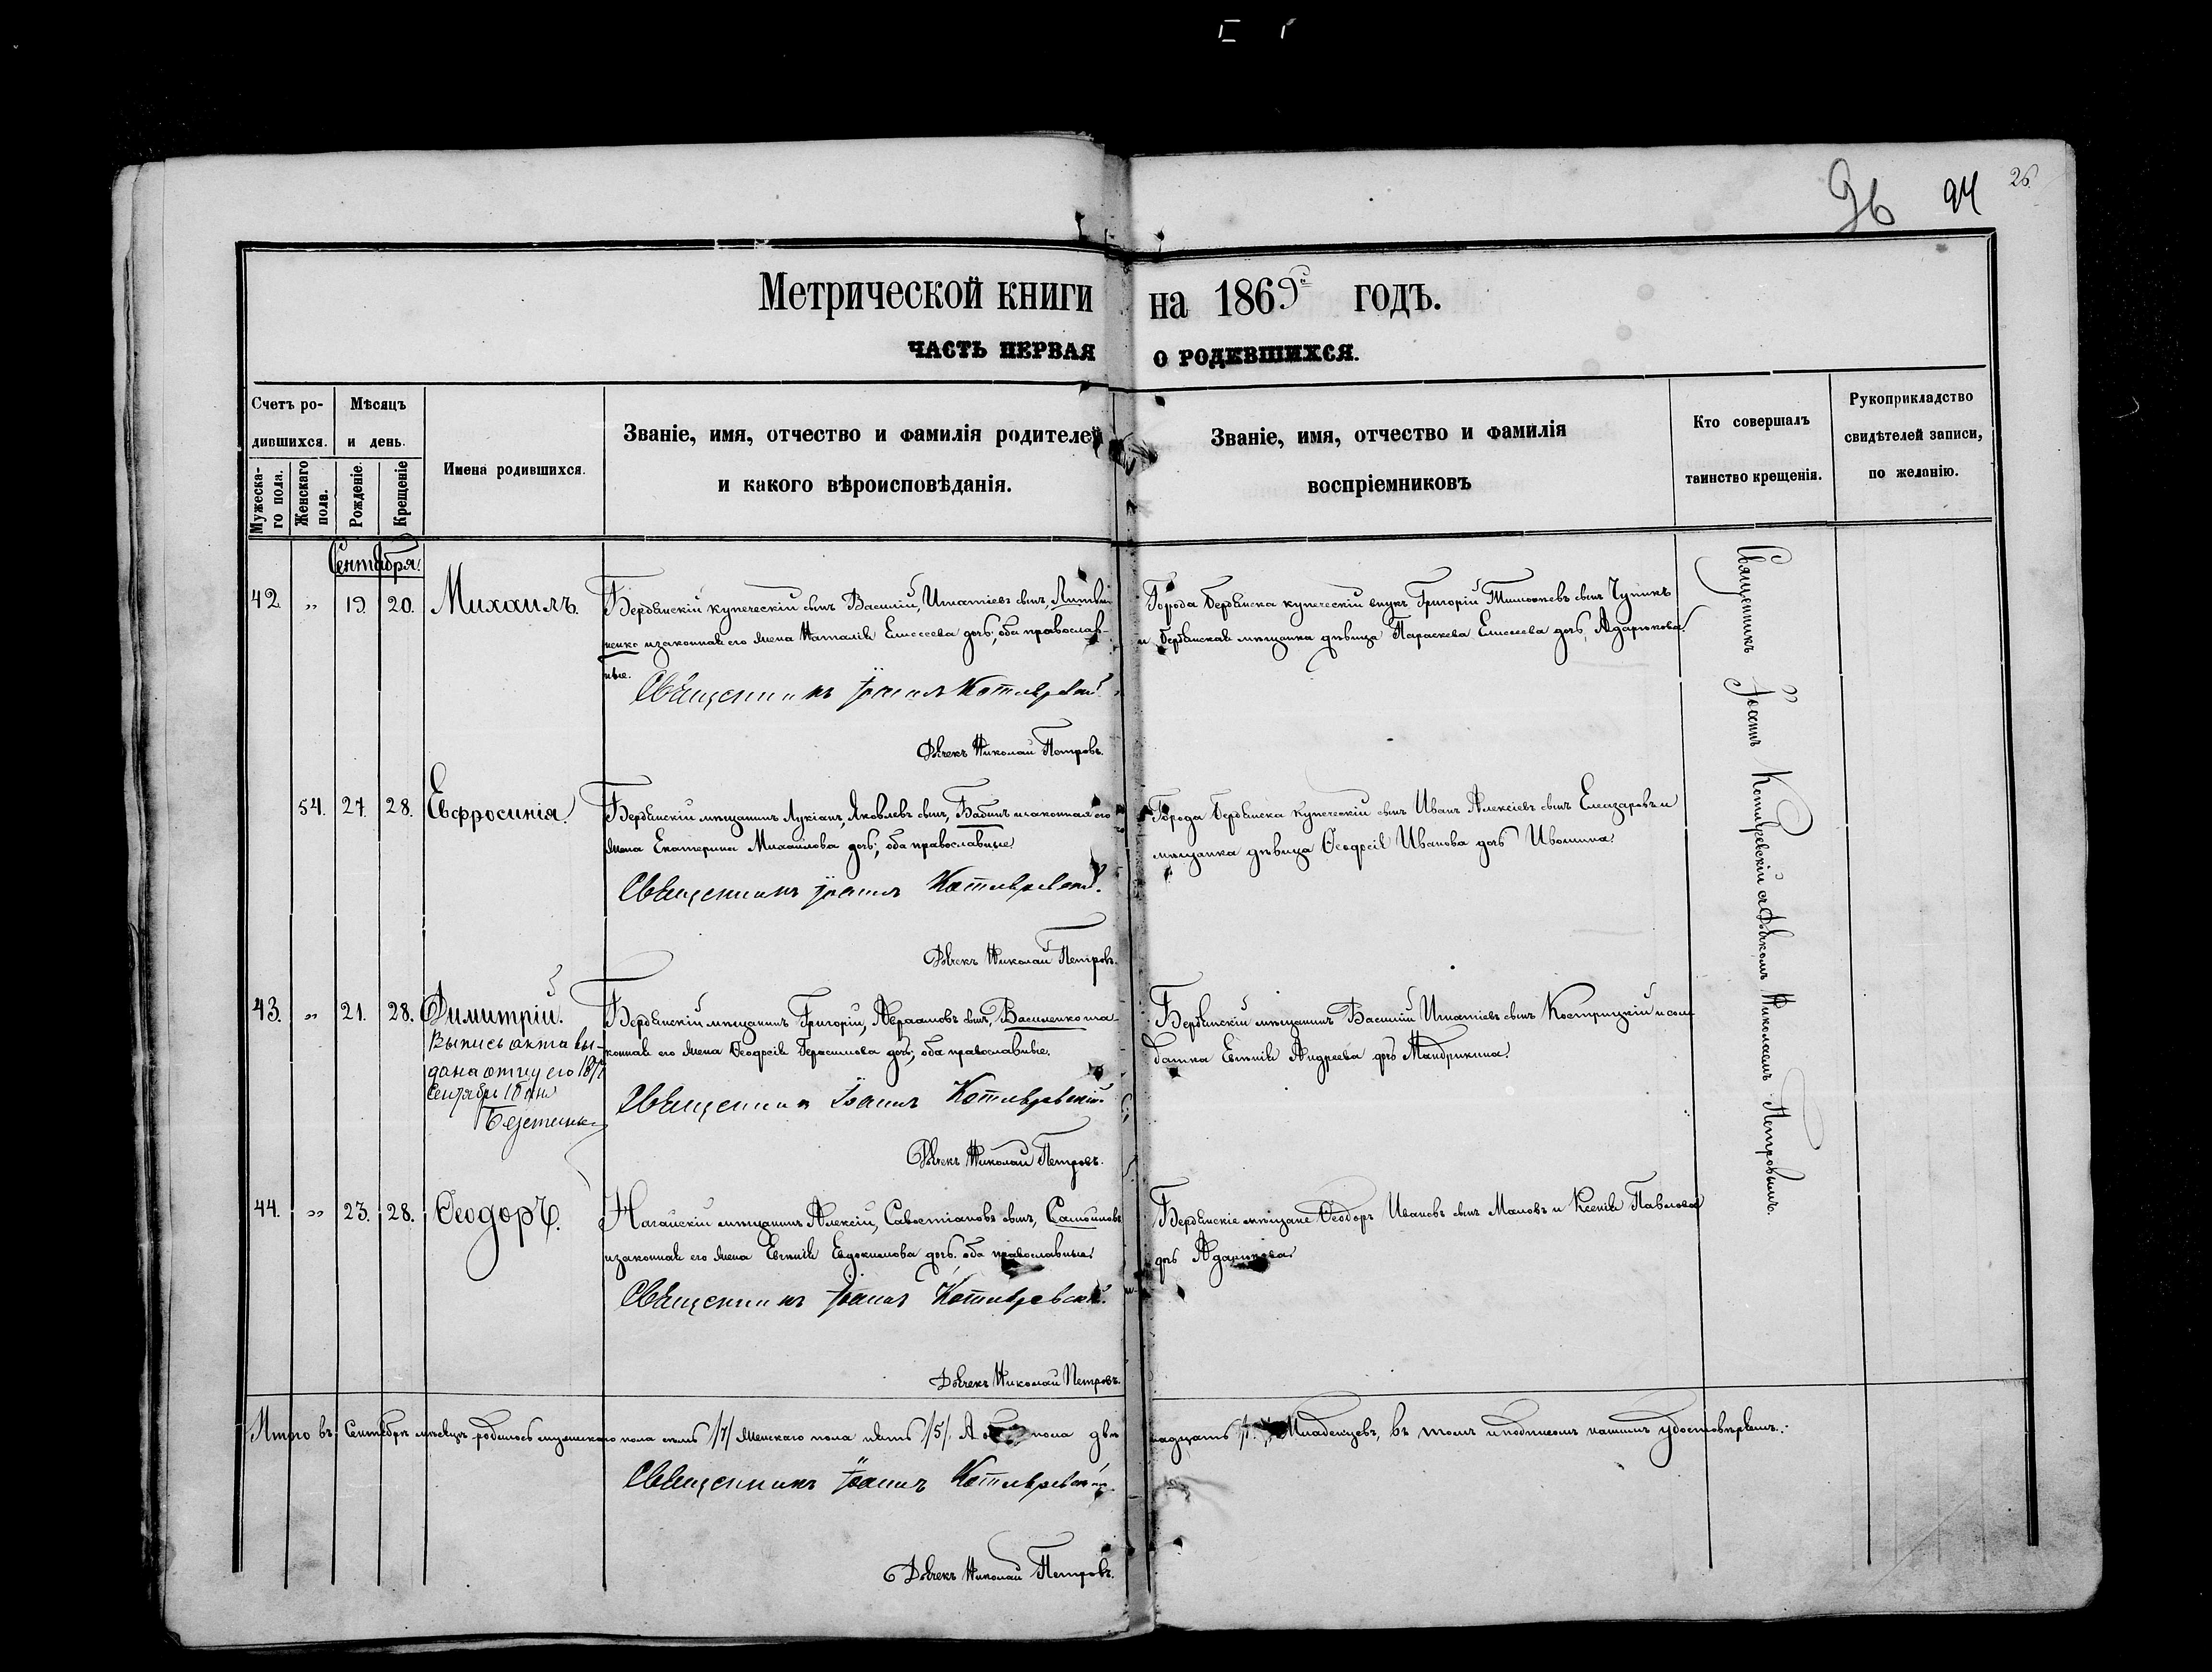 96 94 26.
Метрической книги на 1869й годъ.
ЧАСТЬ ПЕРВАЯ О РОДИВШИХСЯ.
Счетъ ро-
дившихся.
Мужеска-
го пола.
Женскаго
пола.
Мѣсяцъ
и день.
Рожденіе.
Крещеніе
Имена родившихся.
Званіе, имя, отчество и фамилія родителей
и какого вѣроисповѣданія.
Званіе, имя, отчество и фамилія
воспріемниковъ
Кто совершалъ
таинство крещенія.
Рукоприкладство
свидѣтелей записи,
по желанію.
Сентября.
42 " 19 20. Михаилъ.
Бердянскій купеческій сынъ Василій, Игнатіевъ сынъ, Литви-
ненко и законная его жена Наталія Елисеева дочь; оба православ-
ные.
Священникъ Іоаннъ Котляревскій.
Дьячекъ Николай Петровъ.
Города Бердянска купеческій внукъ Григорій Тимофеевъ сынъ Чупикъ
и Бердянская мѣщанка дѣвица Параскева Елисеева дочь, Адарюкова.
54. 27. 28. Евфросинія.
Бердянскій мѣщанинъ Лукіанъ, Яковлевъ сынъ, Бабичъ и законная его
жена Екатерина Михаилова дочь; оба православные.
Священникъ Іоаннъ Котляревскій.
Дьячекъ Николай Петровъ.
Города Бердянска купеческій сынъ Иванъ Алексіевъ сынъ Елизаровъ и
мѣщанка дѣвица Ѳеодосія Иванова дочь Ивошина.
43. " 21. 28. Димитрій.
Выпись акта вы-
дана отцу его
Сентября
Бердянскій мѣщанинъ Григорій, Авраамовъ сынъ, Василенко и за-
конная его жена Ѳеодосія Герасимова дочь; оба православные.
Священникъ Іоаннъ Котляревскій.
Дьячекъ Николай Петровъ.
Бердянскій мѣщанинъ Василій Игнатіевъ сынъ Кострицкій и сол-
датка Евгенія Андреева дочь Мандрикина.
44. " 23. 28. Ѳеодоръ.
Нагайскій мѣщанинъ Алексій, Савостіановъ сынъ, Самойловъ
и законная его жена Евгенія Евдокимова дочь. оба православные.
Священникъ Іоаннъ Котляревскій.
Дьячекъ Николай Петровъ.
Бердянскіе мѣщане Ѳеодоръ Ивановъ сынъ Маловъ и Ксенія Павлова
дочь Адарюкова.
Священникъ Іоаннъ Котляревскій съ Дьячкомъ Николаемъ Петровымъ.
Итого въ Сентябрѣ мѣсяцѣ родилось мужескаго пола семь /7/ женскаго пола пять /5/. А пола две надцать Младенцевъ, въ томъ и подписомъ нашимъ удостовѣряемъ.:
Священникъ Іоаннъ Котляревскій.
Дьячекъ Николай Петровъ.